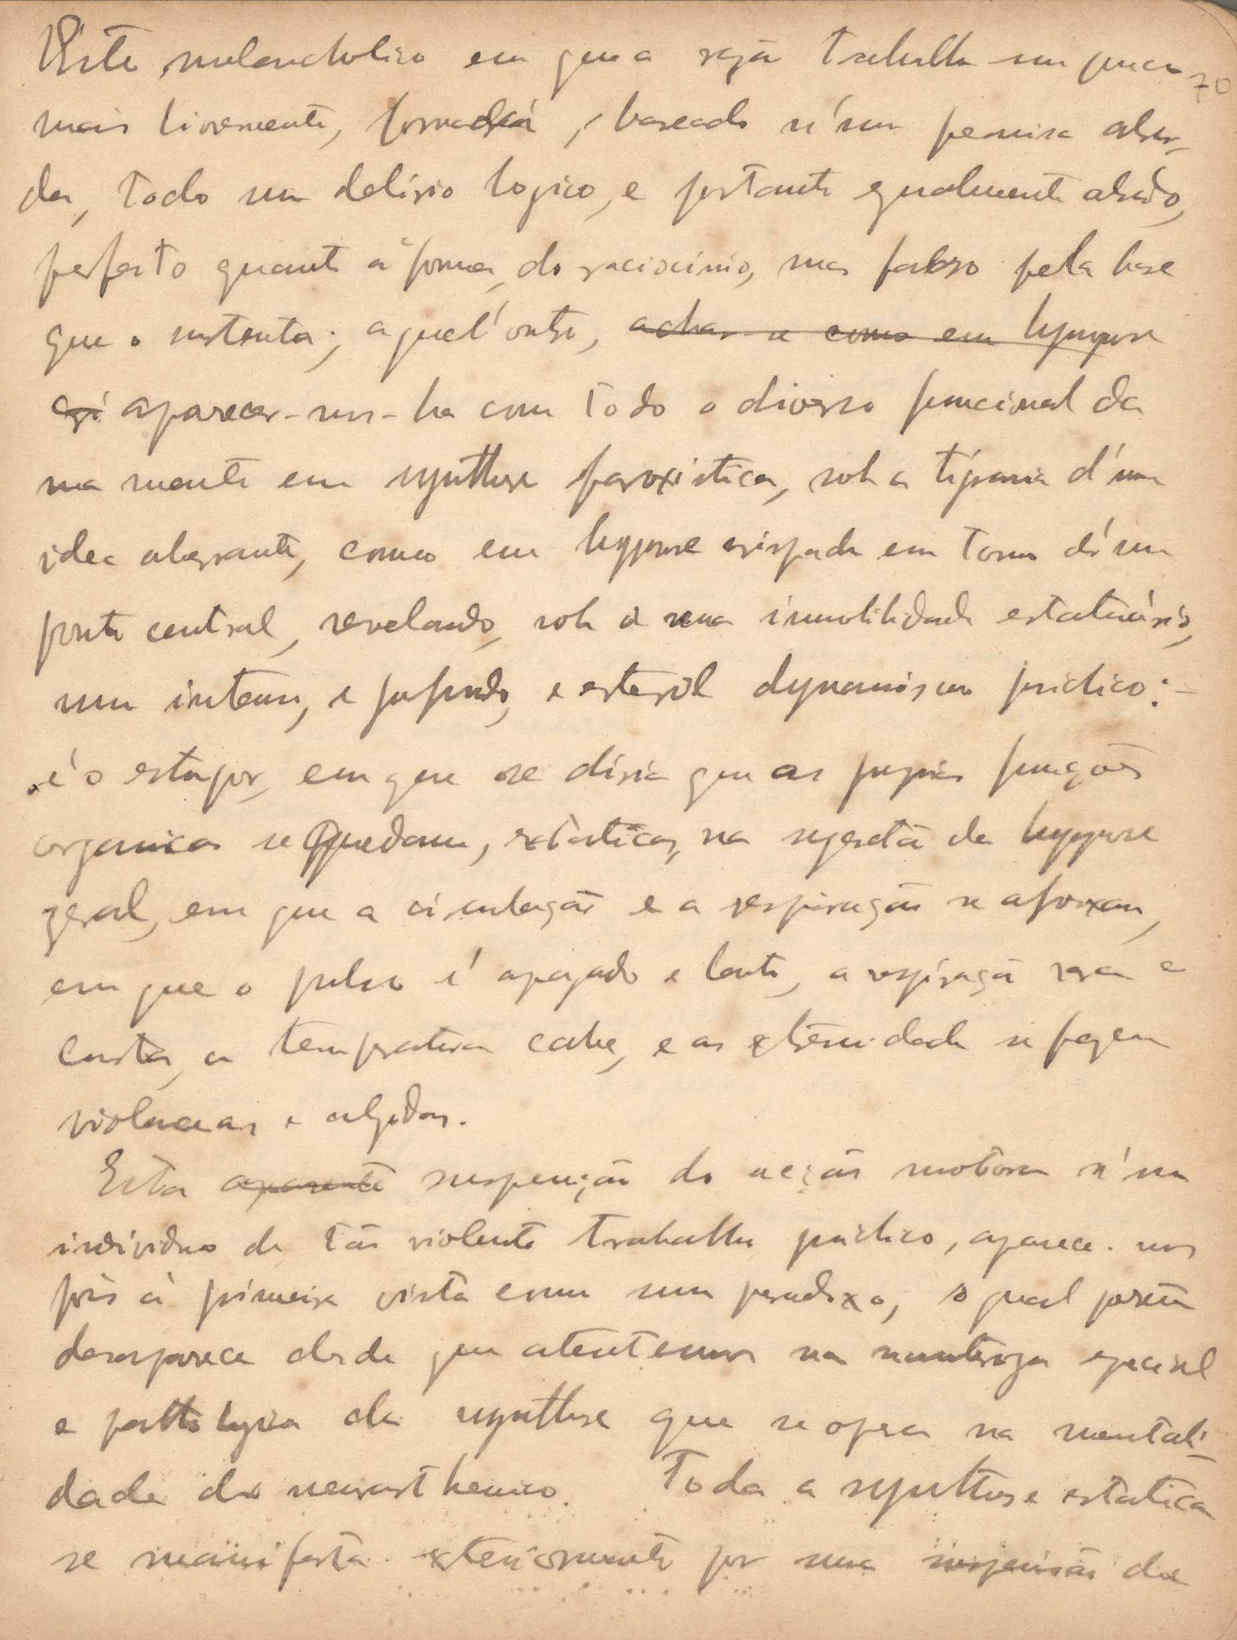 N'este melancholico em que a rasão trabalha um pouco 70
mais livremente, formará, baseado n'um premissa absur-
da, todo um delirio logico, e portanto egualmente absurdo,
perfeito quanto á forma do raciocinio, mas falso pela base
que o sustenta; aquell'outro, achar-se como em hypnose
apparecer-nos-ha com todo o diverso funcional da
sua mente em synthese paroxistica, sob a tirania d'uma
idea aberrante, como em hypnose crispada em torno d'um
ponto central, revelando, sob a sua immobilidade estatuária,
um intenso, e profundo, e esteril dynamismo psichico:-
é o estupor, em que se diria que as proprias funcções
organicas se quedam, extaticas, na sujeição da hypnose
geral, em que a circulação e a respiração se afrouxam,
em que o pulso é apagado e lento, a respiração rara e
curta, a temperatura cahe, e as extremidades se fazem
violaceas e algidas.
Esta aparente suspenção da acção motora n'um
individuo de tão violento trabalho psichico, aparece-nos
pois á primeira vista como um paradoxo, o qual porém
desaparece desde que atentemos na natureza especial
e pathologica da synthese que se opera na mentali-
dade do neurasthenico. Toda a synthese estatica
se manifesta exteriormente por uma suspensão da